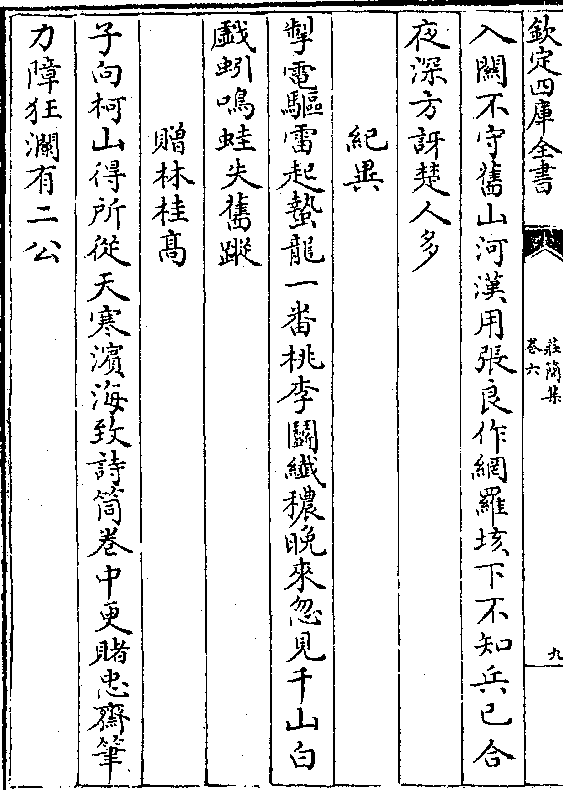 欽定四庫全書
莊簡集
卷六
九
入關不守舊山河漢用張良作網羅垓下不知兵已合
夜深方訝楚人多
紀異
掣電驅雷起蟄龍一番桃李鬭纖穠晚來忽見千山白
戲蚓鳴蛙失舊蹤
贈林桂髙
子向柯山得所從天寒濱海致詩筒卷中更睹忠齋筆
力障狂瀾有二公